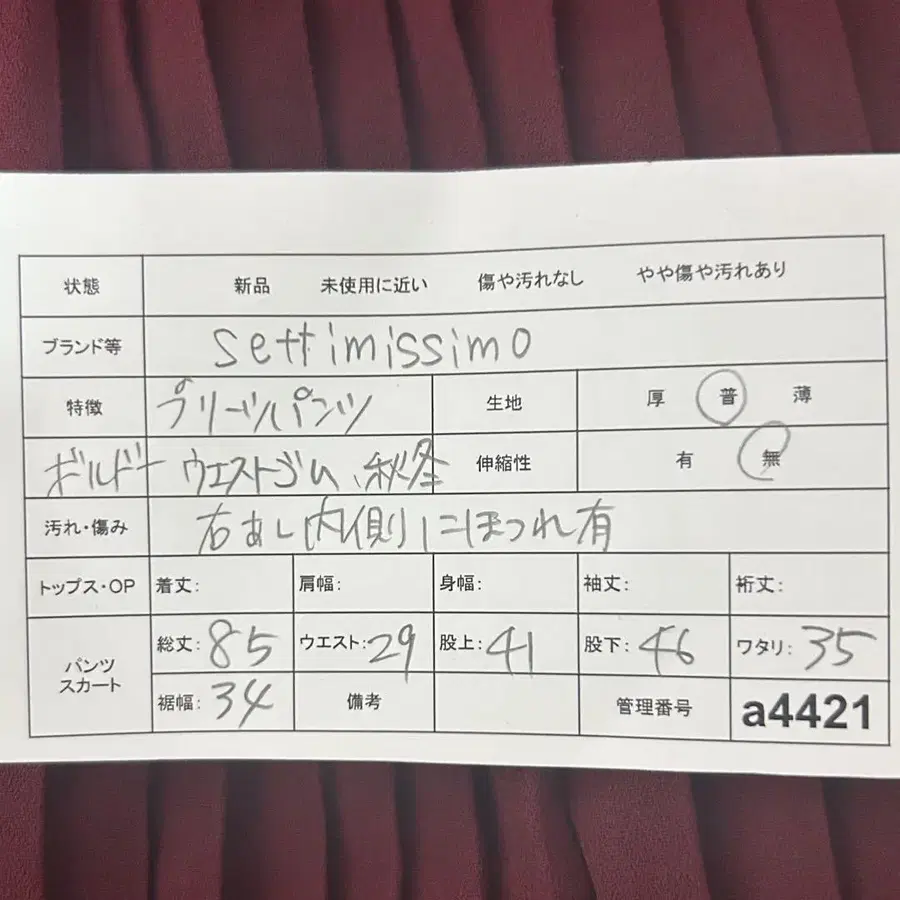 状態 新品 未使用に近い 傷や汚れなし やや傷や汚れあり
ブランド等 settimissimo
特徴 プリーツパンツ 生地 厚 普 薄
ボルドー ウエストゴム、秋冬 伸縮性 有 無
汚れ・傷み 右あし内側にほつれ有
トップス・OP 着丈: 肩幅: 身幅: 袖丈: 裄丈:
パンツ スカート 総丈: 85 ウエスト: 29 股上: 41 股下: 46 ワタリ: 35
裾幅: 34 備考 管理番号 a4421